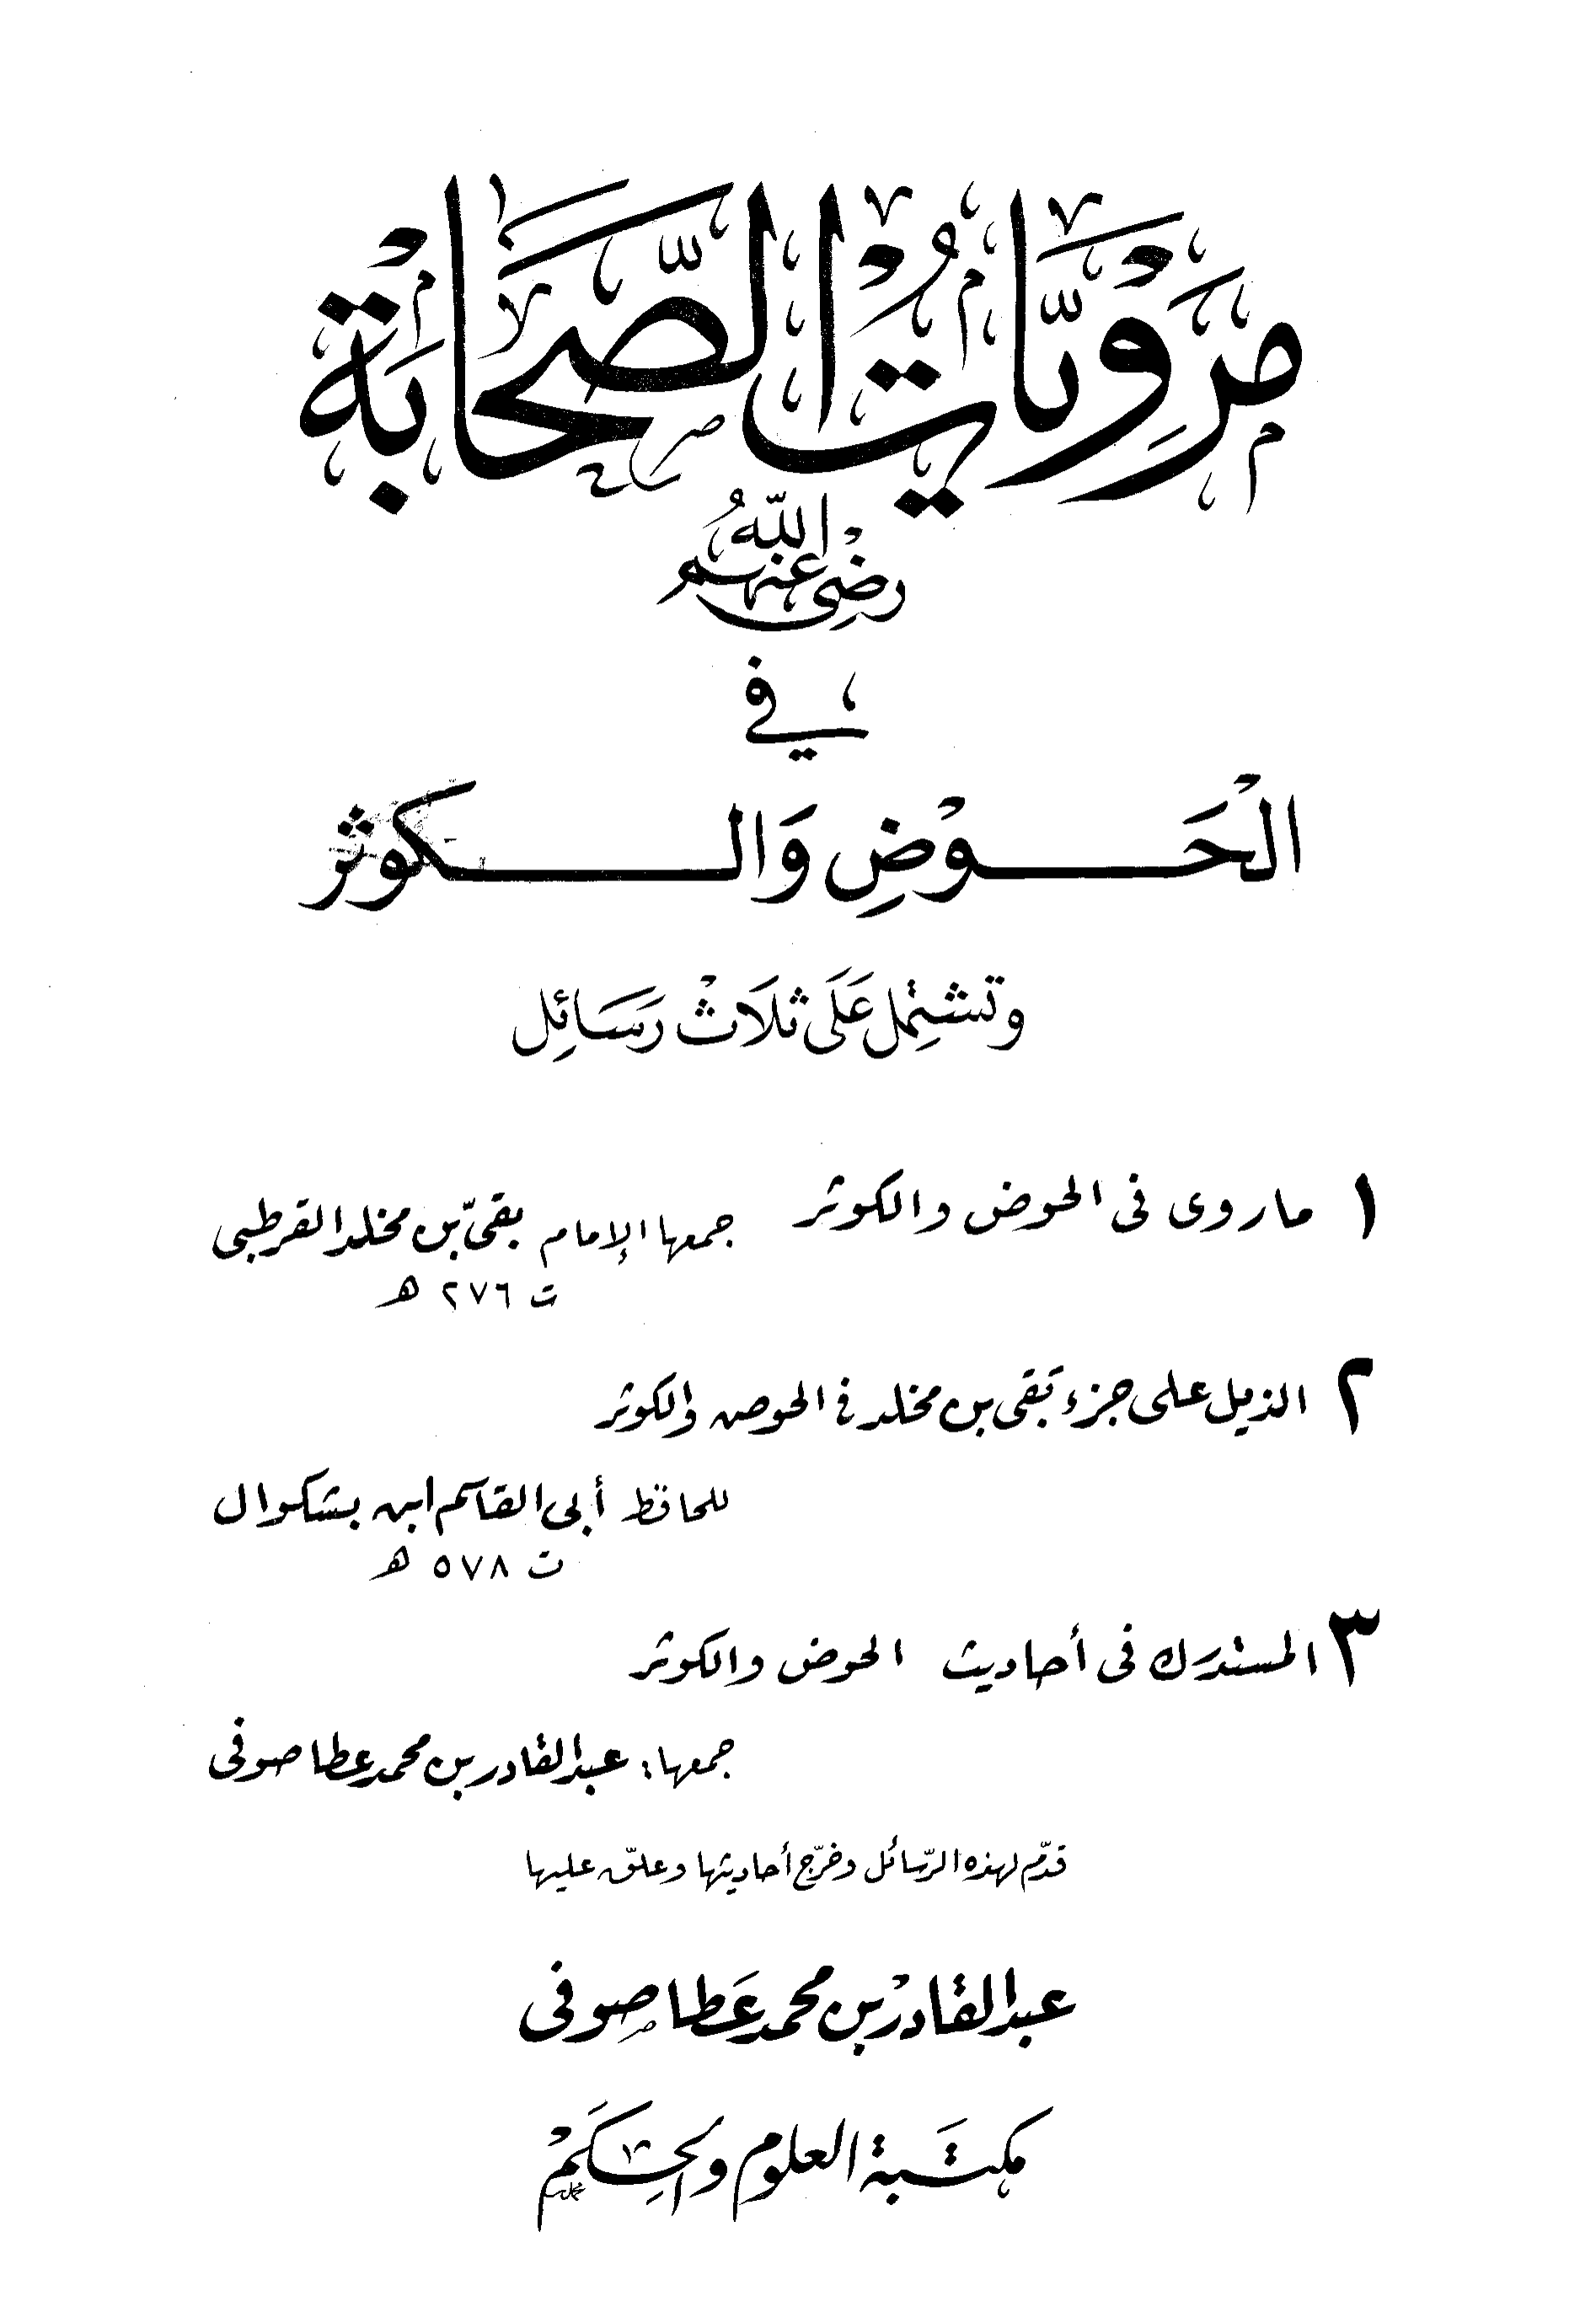 مَرْوِيَّاتُ الصَّحَابَةْ
رضي الله عنهم
في
الْحَوْضِ وَالكوثر
وتشتمل عَلَى ثلَاثْ رَسَائِل
١ ماروى فى الحوض والكوثر جمعها الإمام بقىّ بن مخلد القرطبى
ت ٢٧٦ هـ
٢ الذيل على جزء بَقى بن مخلد فى الحوض والكوثر
للحافظ أبى القاسم ابن بشكوال
ت ٥٧٨ هـ
٣ المستدرك فى أحاديث الحوض والكوثر
جمعها: عبدالقادر بن محمد عطا صوفى
قدّم لهذه الرّسائل وخرّج أحاديثها وعلّق عليها
عبدالقادر بن محمد عَطا صوفى
مكتَبة العلوم والحِكَمْ